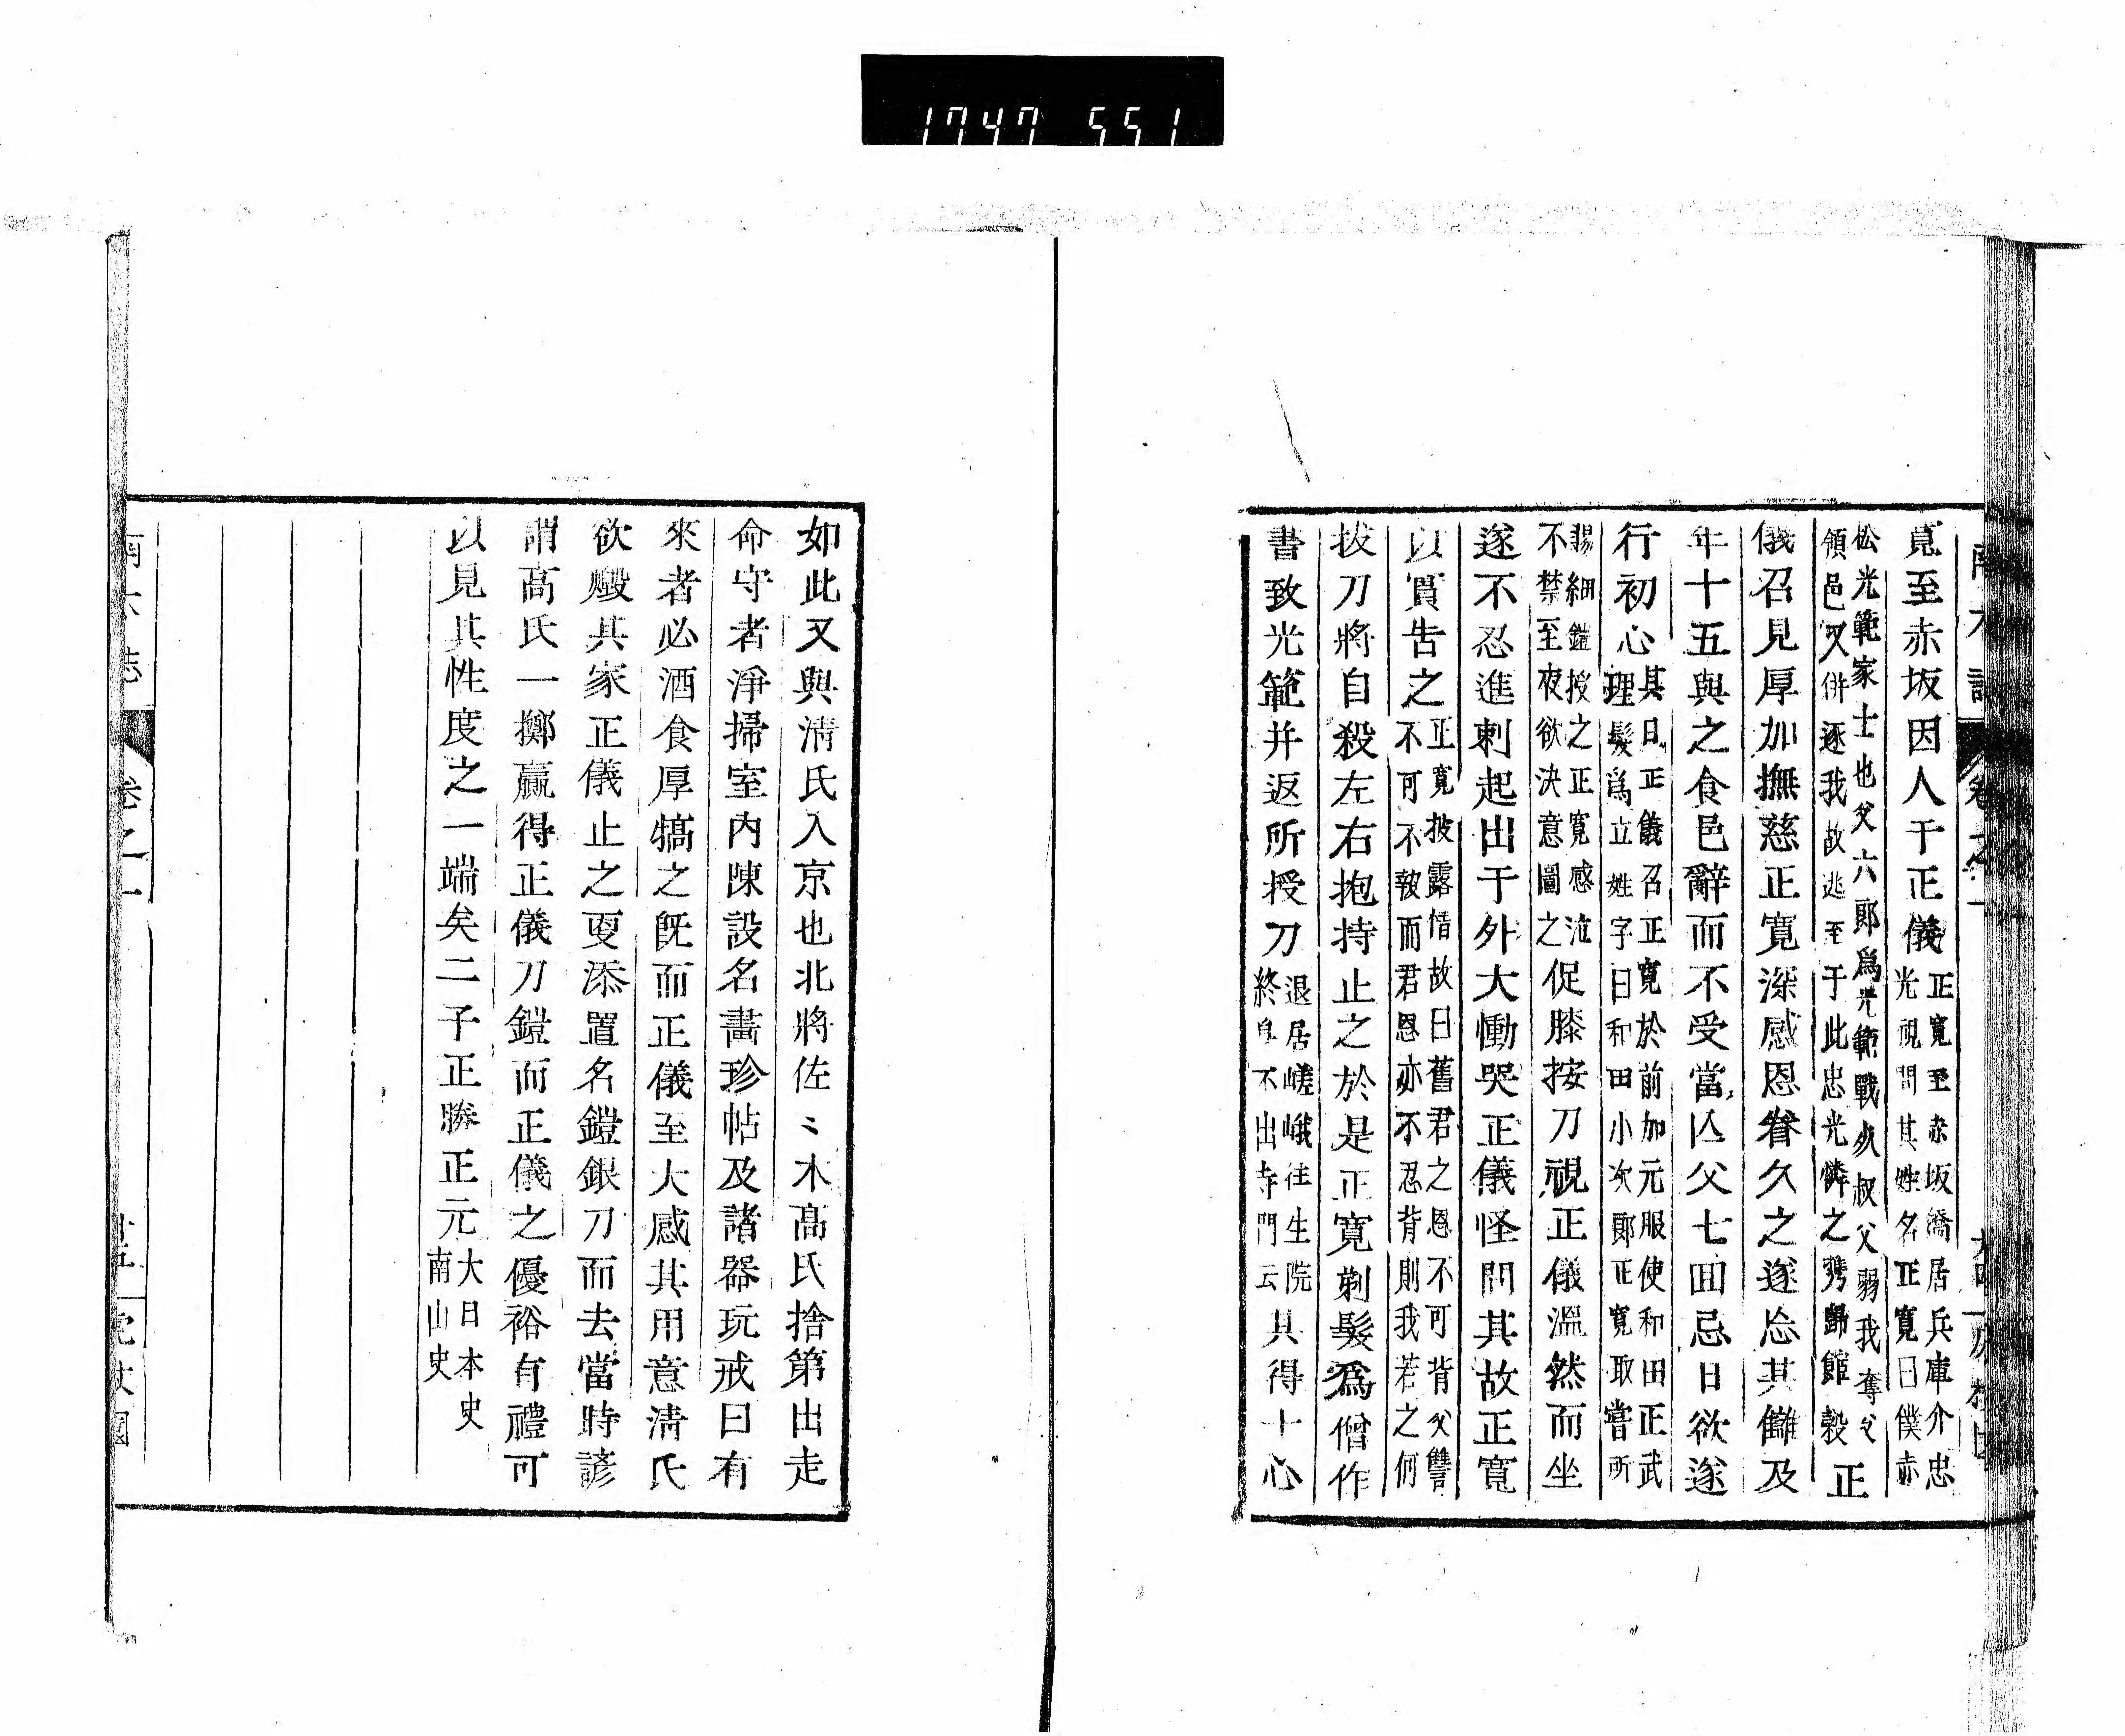 1747 551
寛至赤坂因人于正儀
正寛至赤坂僑居兵庫介忠
光視問其姓名正寛曰僕赤
松光範家士也父六郎爲光範戰死叔父弱我奪父
領邑又併逐我故逃至于此忠光憐之携歸館穀正
儀召見厚加撫慈正寛深感恩眷久之遂忘其讎及
年十五與之食邑辭而不受當亾父七囬忌日欲遂
行初心
其日正儀召正寛於前加元服使和田正武
理髮爲立姓字曰和田小次郎正寛取嘗所
賜細鎧授之正寛感泣
不禁至夜欲決意圖之
促膝按刀視正儀溫然而坐
遂不忍進刺起出于外大慟哭正儀怪問其故正寛
以實告之
正寛披露借故曰舊君之恩不可背父讐
不可不報而君恩亦不忍背則我若之何
拔刀將自殺左右抱持止之於是正寛剃髮爲僧作
書致光範并返所授刀
退居嵯峨往生院
終身不出寺門云
其得士心
如此又與淸氏入京也北將佐〻木髙氏捨第出走
命守者淨掃室内陳設名畵珍帖及諸器玩戒曰有
來者必酒食厚犒之旣而正儀至大感其用意淸氏
欲燬其家正儀止之更添置名鎧銀刀而去當時諺
謂髙氏一擲贏得正儀刀鎧而正儀之優裕有禮可
以見其性度之一端矣二子正勝正元
大日本史
南山史
卷之一